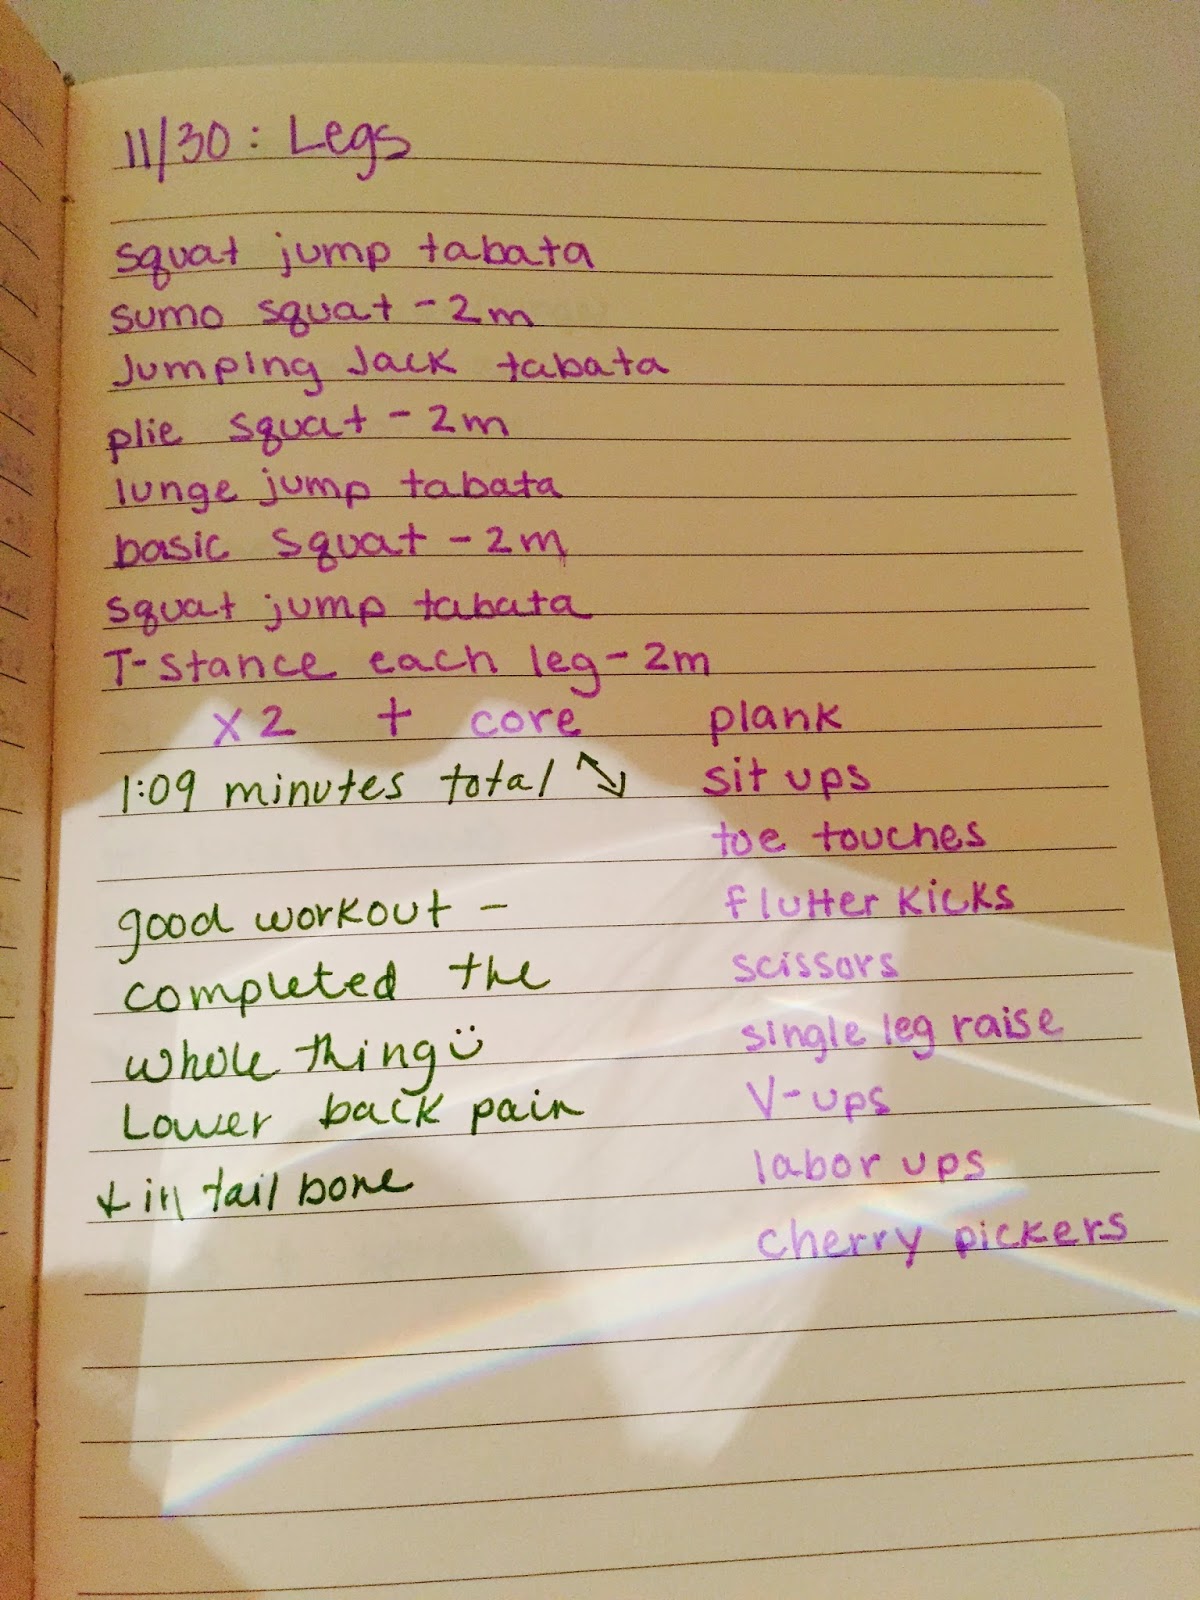 11/30: Legs
squat jump tabata
sumo squat - 2m
Jumping Jack tabata
plie squat - 2m
lunge jump tabata
basic squat - 2m
squat jump tabata
T-stance each leg - 2m
x2 + core
1:09 minutes total ↘
plank
sit ups
toe touches
flutter kicks
scissors
single leg raise
V-ups
labor ups
cherry pickers
good workout -
completed the
whole thing ü
Lower back pain
+ in tail bone